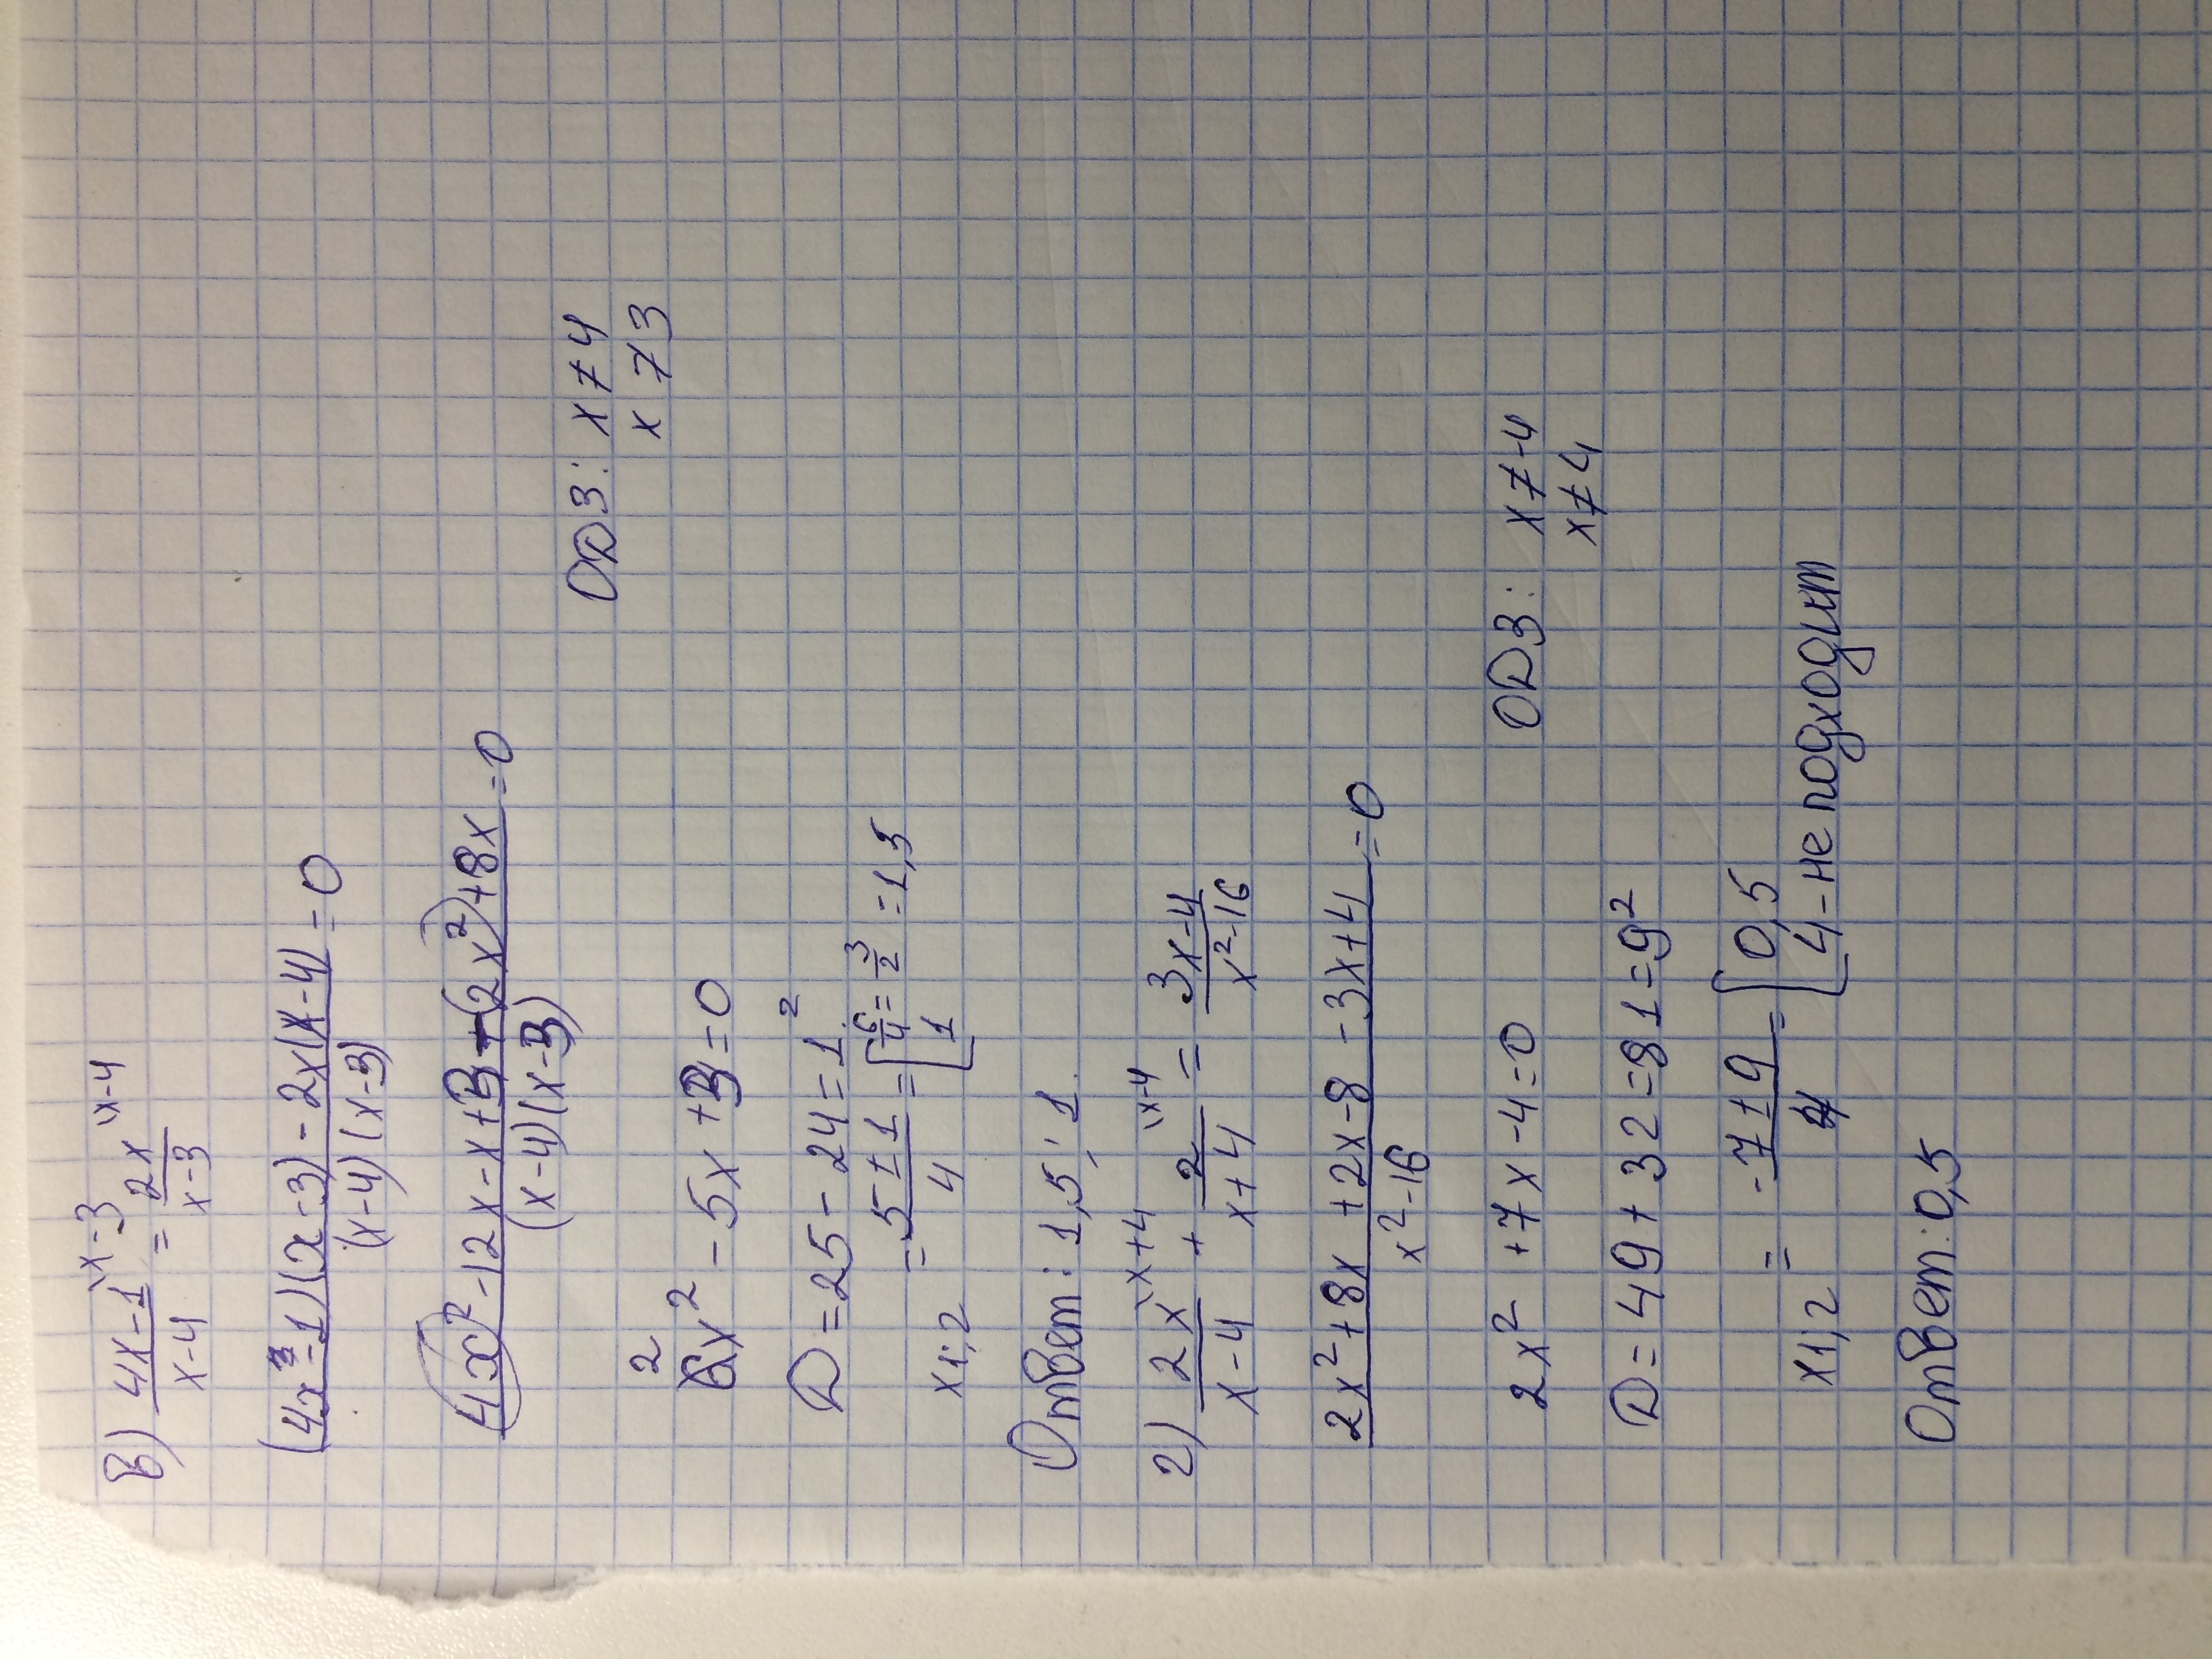 в) (4x-1)/(x-4) \x-3 = 2x/(x-3) \x-4
((4x-1)(x-3) - 2x(x-4))/((x-4)(x-3)) = 0
(4x²-12x-x+3-2x²+8x)/((x-4)(x-3)) = 0
ОДЗ: x≠4
x≠3
2x²-5x+3=0
D=25-24=1²
x1,2 = (5±1)/4 = [6/4=3/2=1,5
1
Ответ: 1,5; 1.
2) 2x/(x-4) \x+4 + 2/(x+4) \x-4 = (3x-4)/(x²-16)
(2x²+8x+2x-8-3x+4)/(x²-16) = 0
2x²+7x-4=0 ОДЗ: x≠-4
x≠4
D=49+32=81=9²
x1,2 = (-7±9)/4 = [0,5
4-не подходит
Ответ: 0,5